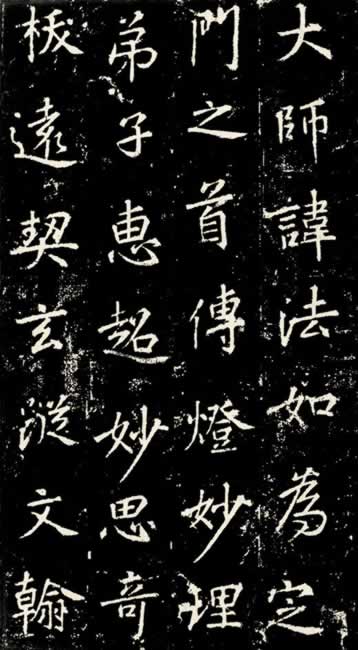 大師諱法如為定
門之首傳燈妙理
弟子惠超妙思奇
拔遠契玄蹤文翰